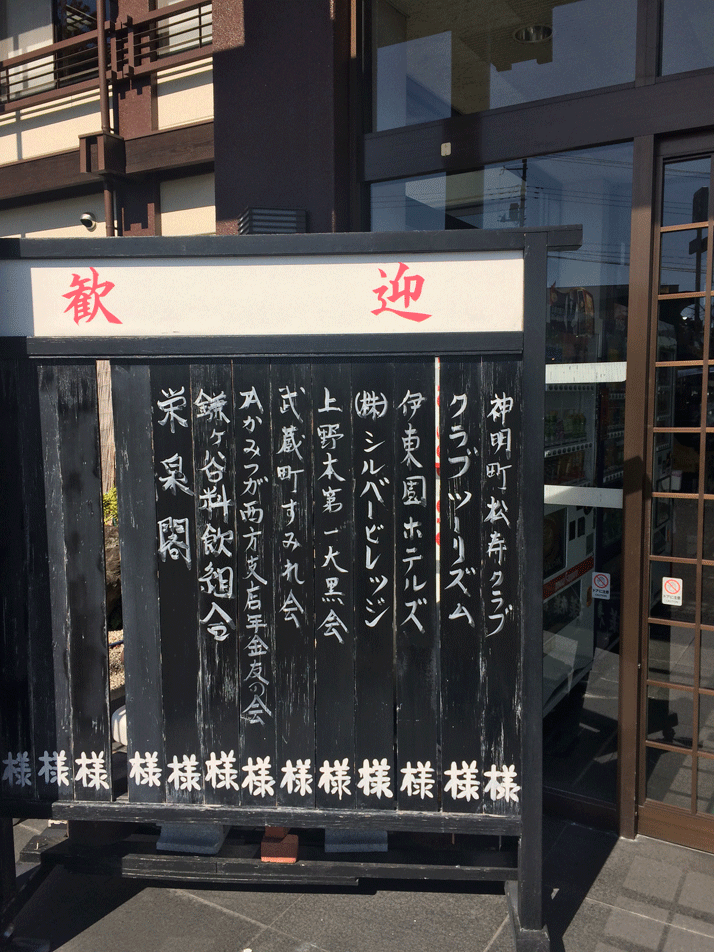 歓迎
神明町松寿クラブ様
クラブツーリズム様
伊東園ホテルズ様
㈱シルバービレッジ様
上野木第一大黒会様
武蔵町すみれ会様
JAかみつが西方支店年金友の会様
鎌ヶ谷料飲組合様
栄泉閣様
様
様
様
様